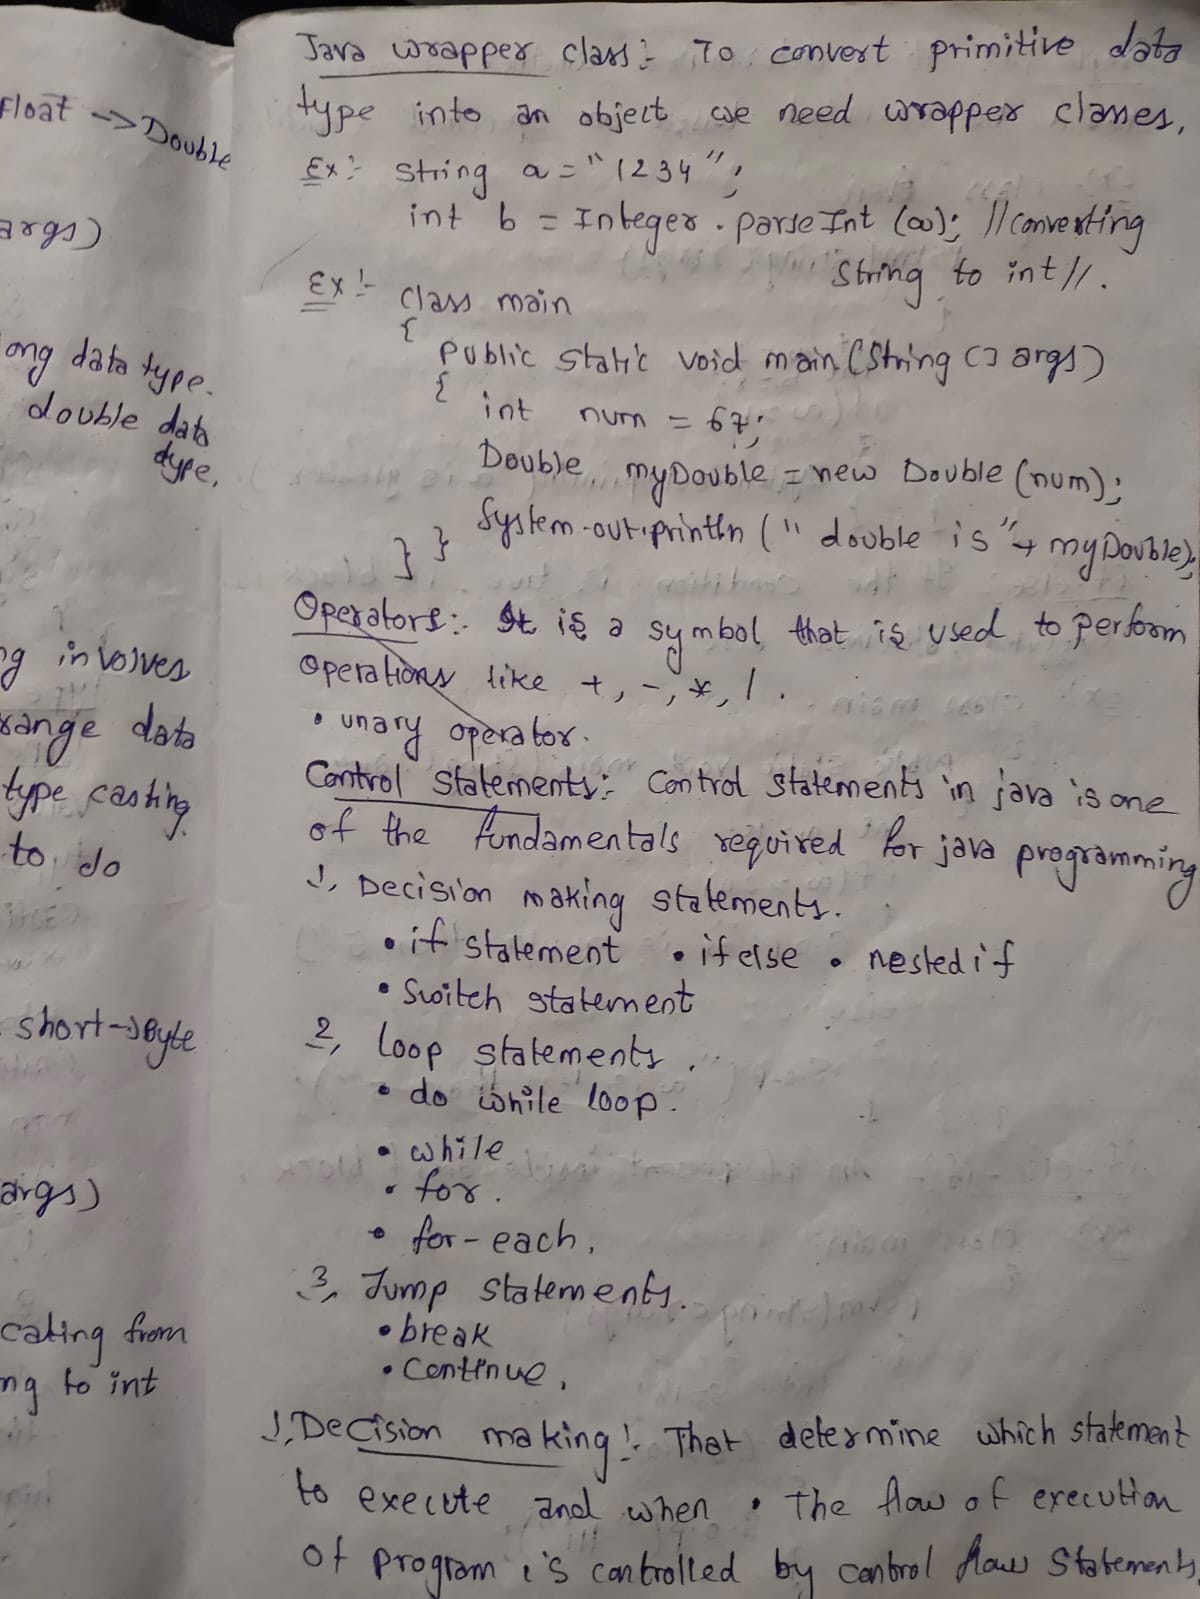 Float -> Double
args)
ong data type.
double data
type.
ng involves
range data
type casting.
to do
short->Byte
args)
cating from
ng to int
Java wrapper class:- To convert primitive data
type into an object we need wrapper classes.
Ex:- String a = "1234";
int b = Integer.parseInt (a); //converting
String to int//.
Ex:- class main
{
public static void main(String [] args)
{
int num = 67;
Double myDouble = new Double (num);
System.out.println (" double is "+ myDouble);
} }
Operators:- It is a symbol that is used to perform
operations like +, -, *, / .
• unary operator.
Control Statements:- Control statements in java is one
of the fundamentals required for java programming
1, Decision making statements.
• if statement • if else • nested if
• Switch statement
2, loop statements.
• do while loop.
• while
• for.
• for-each.
3, Jump statements.
• break
• Continue.
1, Decision making:- That determine which statement
to execute and when • The flow of execution
of program is controlled by control flow statements.